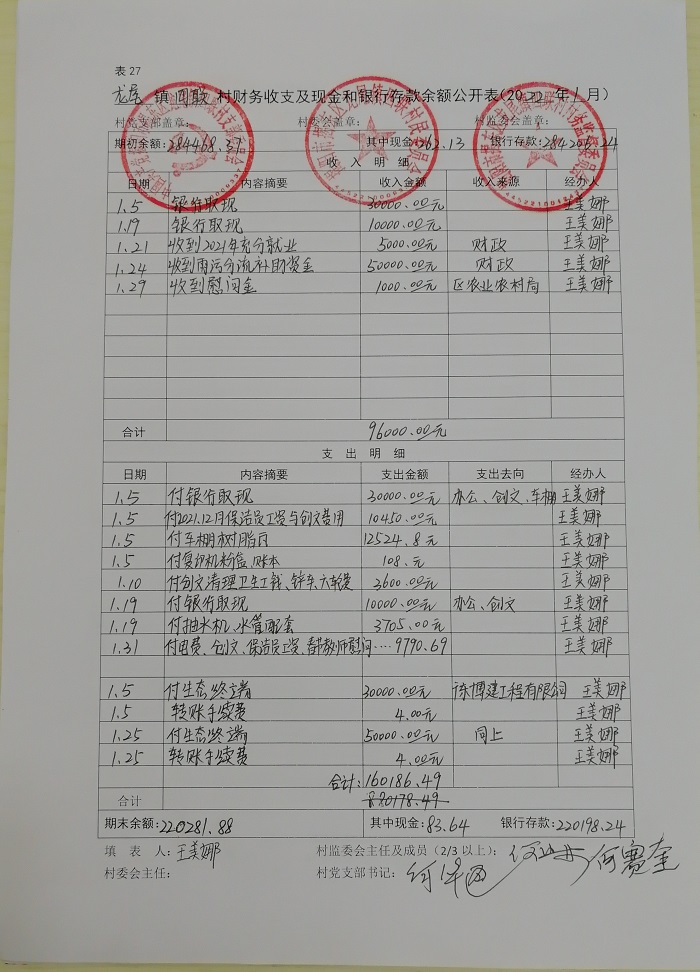 表 27
龙尾 镇 四联 村财务收支及现金和银行存款余额公开表(2022 年 1 月)
村党支部盖章: 村委会盖章: 村监委会盖章:
期初余额:284468.37 其中现金:262.13 银行存款:284206.24
收 入 明 细
日期 内容摘要 收入金额 收入来源 经办人
1.5 银行取现 30000.00元 王美娜
1.19 银行取现 10000.00元 王美娜
1.21 收到2021年充分就业 5000.00元 财政 王美娜
1.24 收到雨污分流补助资金 50000.00元 财政 王美娜
1.29 收到慰问金 1000.00元 区农业农村局 王美娜
合计 96000.00元
支 出 明 细
日期 内容摘要 支出金额 支出去向 经办人
1.5 付银行取现 30000.00元 办公、创文、车棚 王美娜
1.5 付2021.12月保洁员工资与创文费用 10450.00元 王美娜
1.5 付车棚树脂瓦 12524.8元 王美娜
1.5 付复印机粉盒、账本 108.元 王美娜
1.10 付创文清理卫生工钱、铲车、六轮费 3600.00元 王美娜
1.19 付银行取现 10000.00元 办公、创文 王美娜
1.19 付抽水机、水管配套 3705.00元 王美娜
1.31 付电费、创文、保洁员工资、春节教师慰问....9790.69 王美娜
1.5 付生态终端 30000.00元 博建工程有限公司 王美娜
1.5 转账手续费 4.00元 王美娜
1.25 付生态终端 50000.00元 同上 王美娜
1.25 转账手续费 4.00元 王美娜
合计:160186.49
合计
期末余额:220281.88 其中现金:83.64 银行存款:220198.24
填 表 人:王美娜 村监委会主任及成员(2/3 以上): 何赛奎
村委会主任: 村党支部书记: